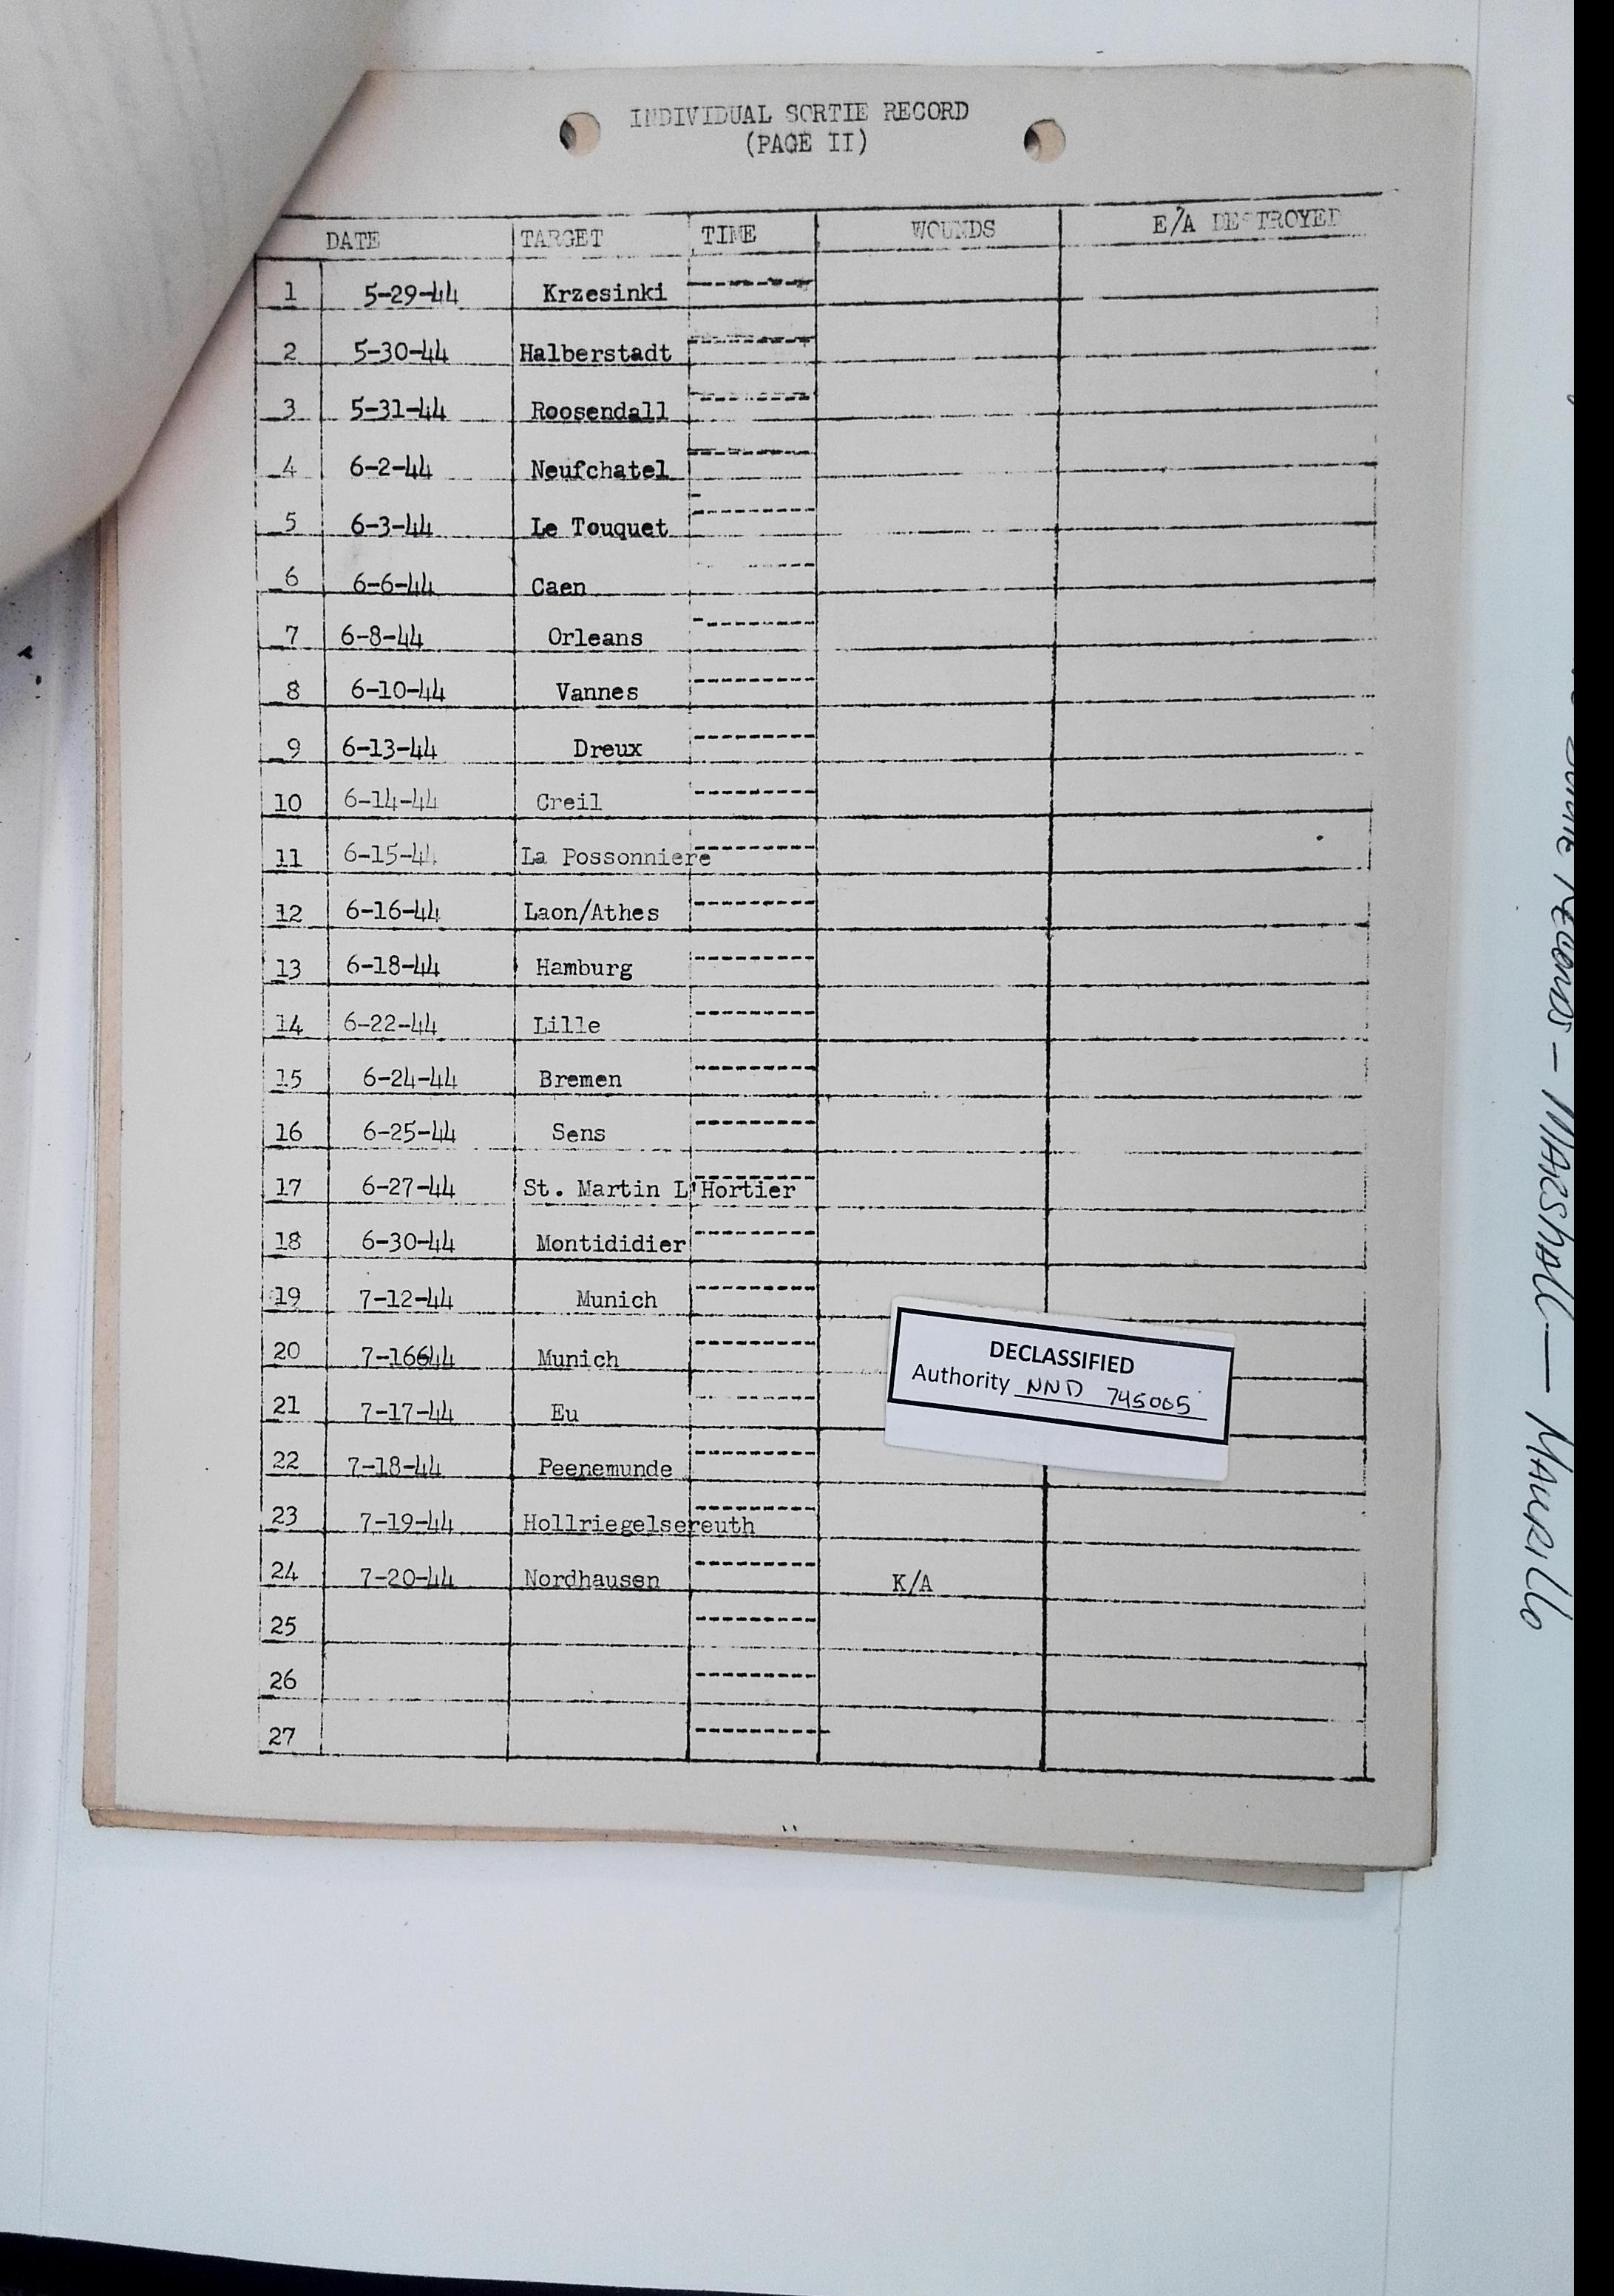 INDIVIDUAL SORTIE RECORD
(PAGE II)
DATE TARGET TIME WOUNDS E/A DESTROYED
1 5-29-44 Krzesinki
2 5-30-44 Halberstadt
3 5-31-44 Roosendall
4 6-2-44 Neufchatel
5 6-3-44 Le Touquet
6 6-6-44 Caen
7 6-8-44 Orleans
8 6-10-44 Vannes
9 6-13-44 Dreux
10 6-14-44 Creil
11 6-15-44 La Possonniere
12 6-16-44 Laon/Athes
13 6-18-44 Hamburg
14 6-22-44 Lille
15 6-24-44 Bremen
16 6-25-44 Sens
17 6-27-44 St. Martin L'Hortier
18 6-30-44 Montididier
19 7-12-44 Munich
20 7-16644 Munich
21 7-17-44 Eu
22 7-18-44 Peenemunde
23 7-19-44 Hollriegelsereuth
24 7-20-44 Nordhausen K/A
25
26
27
DECLASSIFIED
Authority NND 745005
Records - Marshall - Maurillo